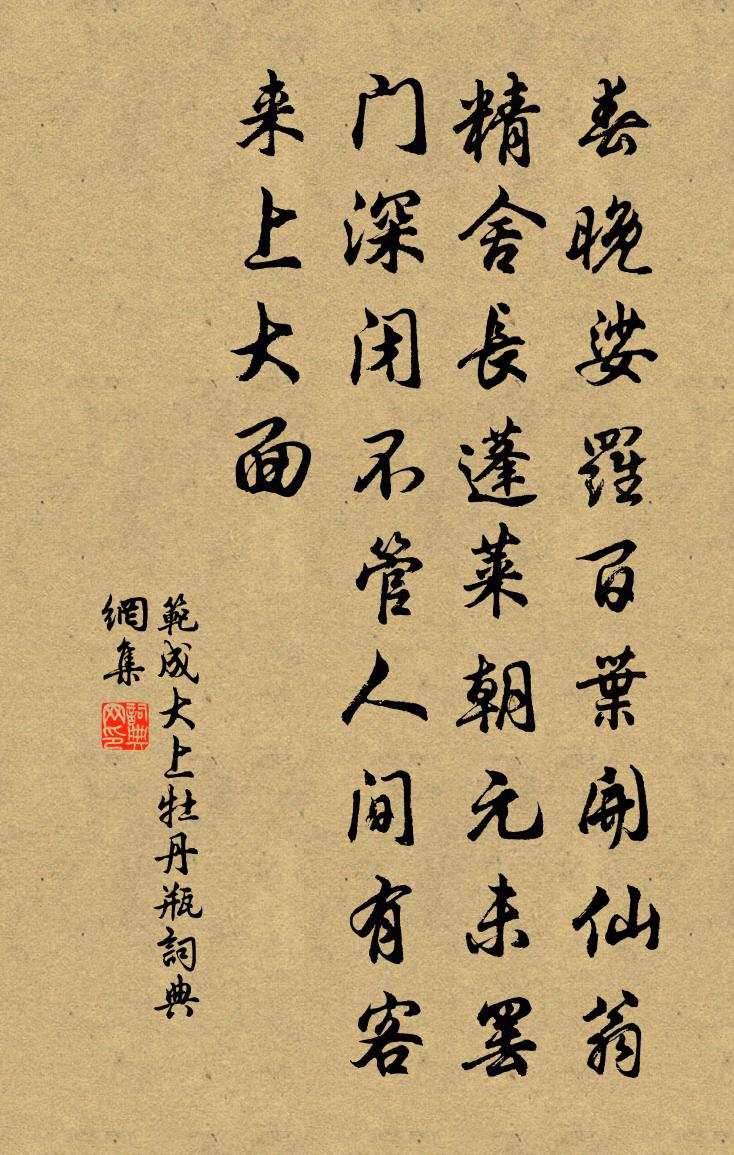 春晚娑羅百葉開仙翁
精舍長蓬萊朝元未罷
门深闭不管人间有客
来上大面
範成大上牡丹瓶詞典
網集
詞典
网印